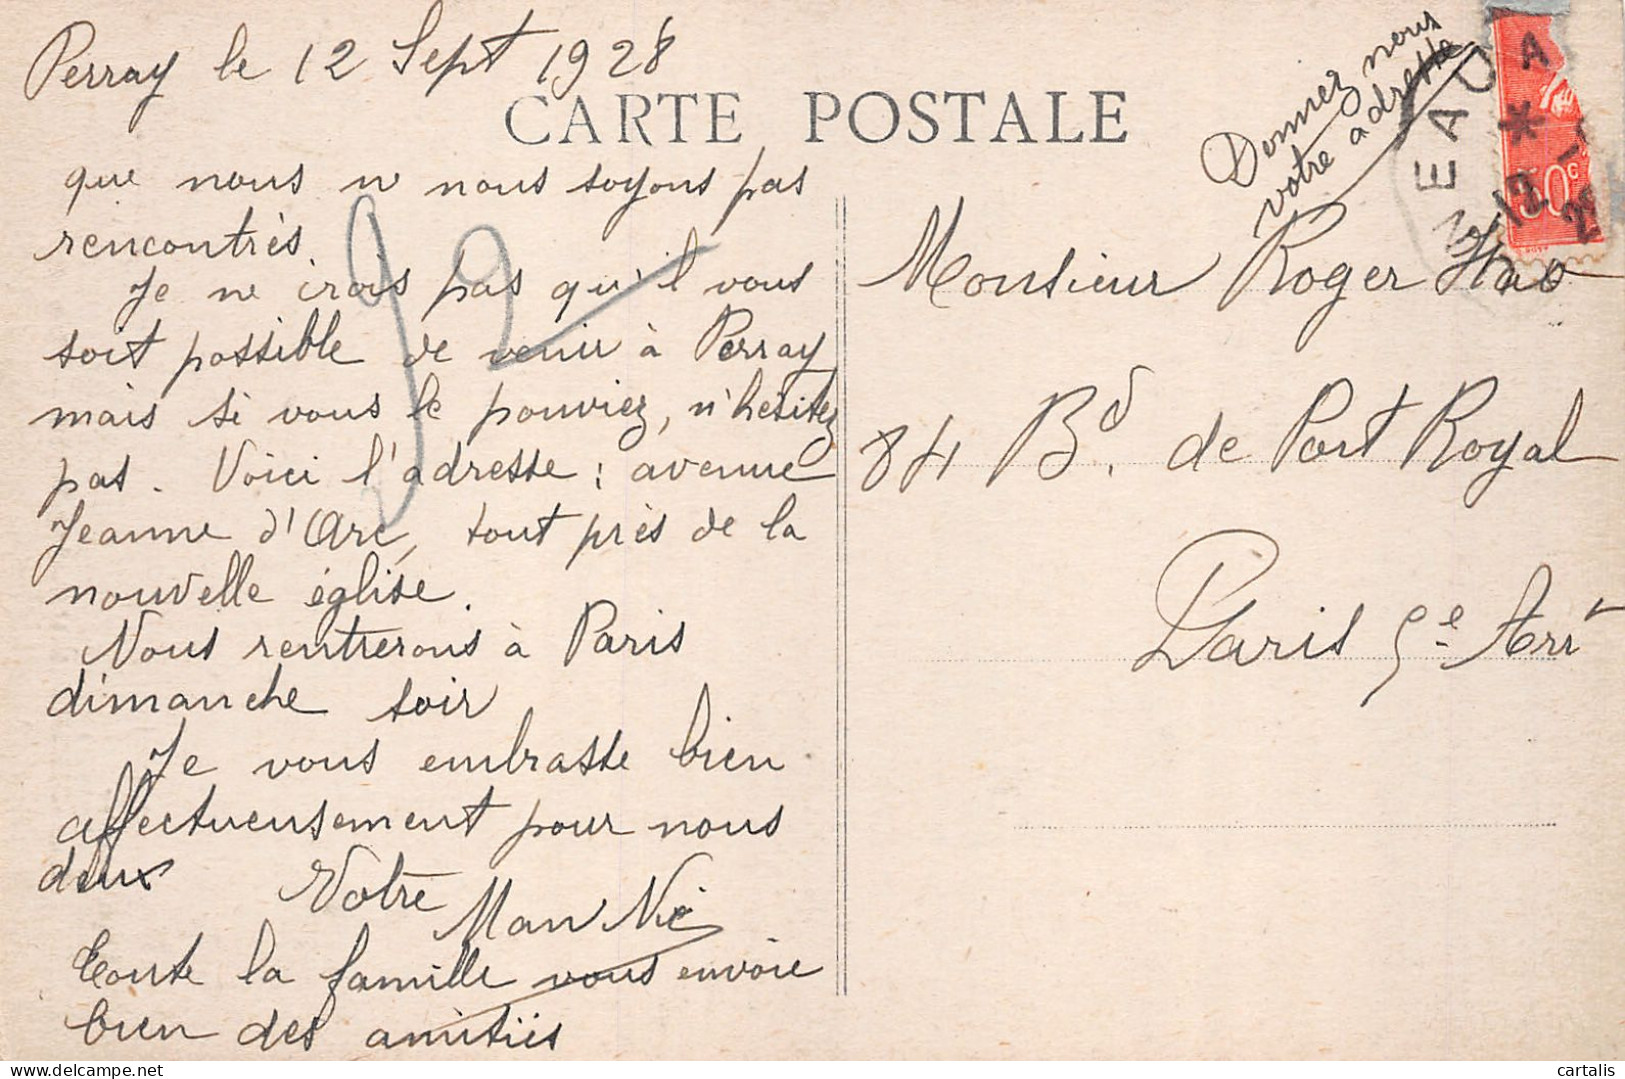 Perray le 12 Sept 1928
CARTE POSTALE
que nous ne nous soyons pas
rencontrés.
Je ne crois pas qu'il vous
soit possible de venir à Perray
mais si vous le pouviez, n'hésitez
pas. Voici l'adresse : avenue
Jeanne d'Arc, tout près de la
nouvelle église.
Nous rentrerons à Paris
dimanche soir
Je vous embrasse bien
affectueusement pour nous
deux Votre
Toute la famille vous envoie
bien des amitiés
Donnez nous
votre adresse
Monsieur Roger
84 Bd. de Port Royal
Paris 5e Arrt
50c
12
cartalis
delcampe.net